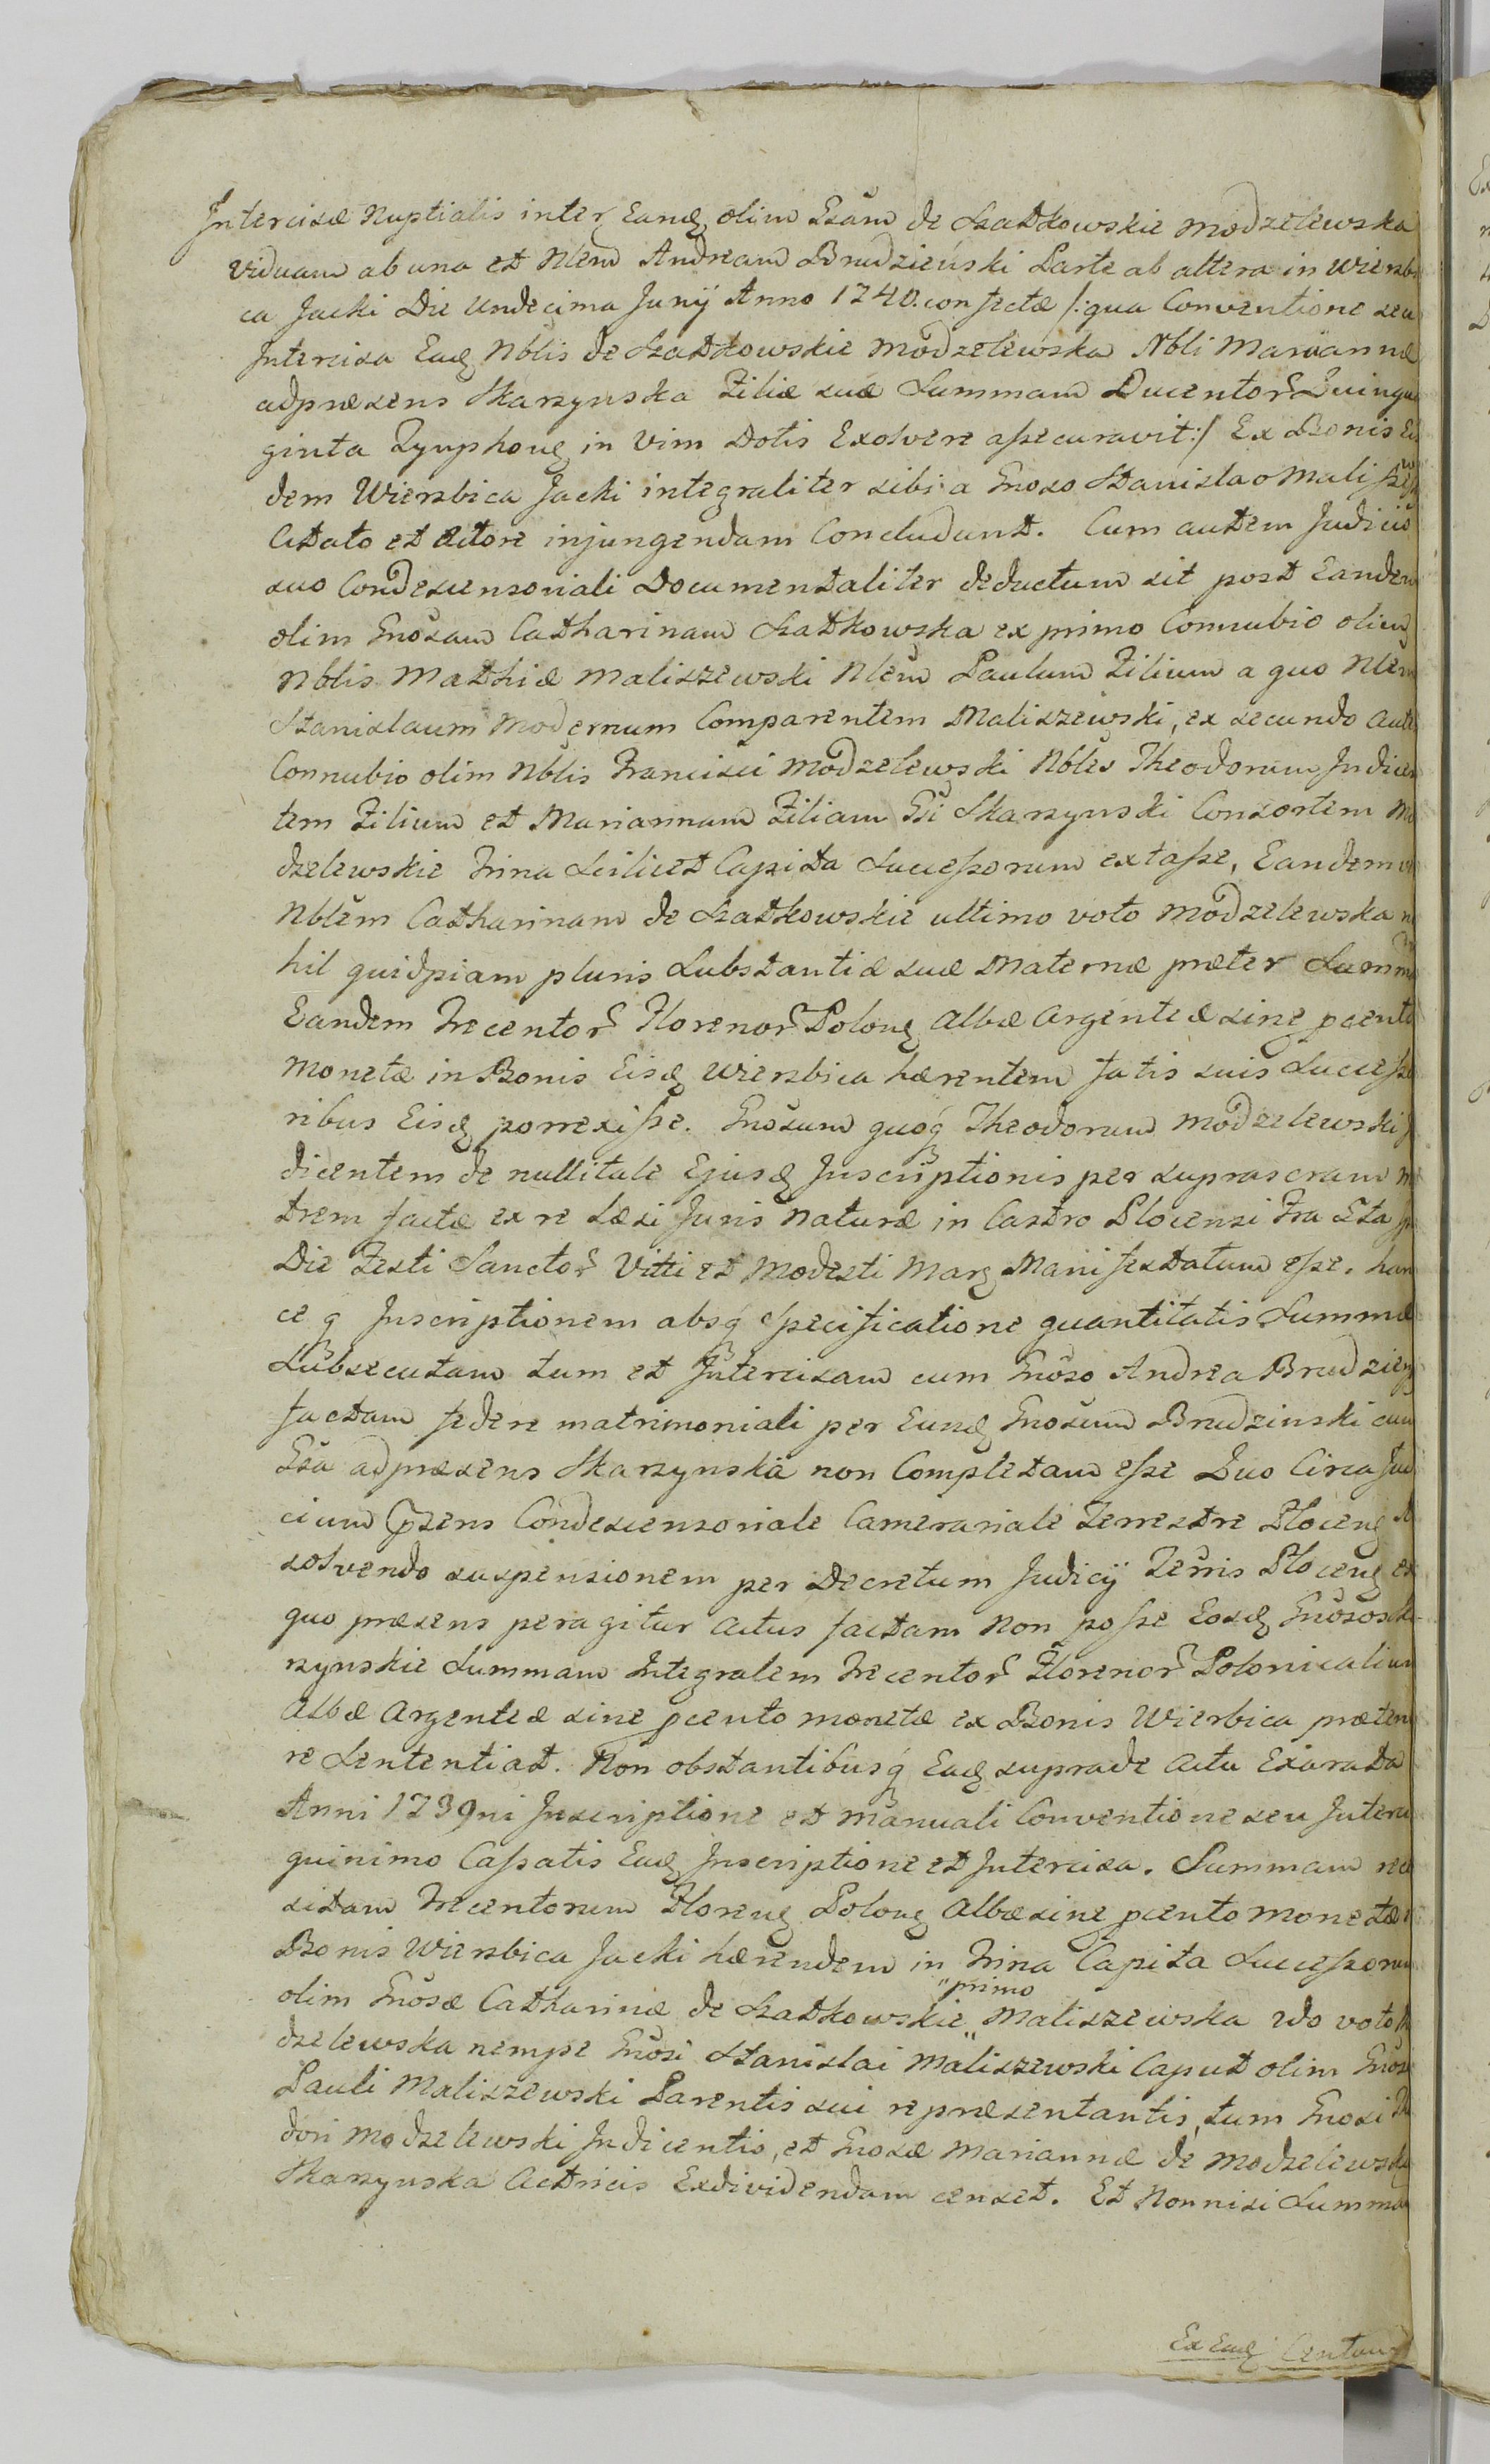 Intercisæ Nuptialis inter Eandꝫ olim Gsam de Szadkowskie Modzelewska
Viduam ab una et Nlem Andream Brudzieński Parte ab altera in Wierzbi
ca Jacki Die Undecima Junij Anno 1740. confectæ /: qua Conventione seu
Intercisa Eadꝫ Nblis de Szadkowskie Modzelewska Nbli Mariannæ
adpræsens Skarzynska Filiæ suæ Summam Ducentor Quinqua
ginta Tynphonꝫ in Vim Dotis Exolvere assecuravit :/ Ex Bonis Eis
dem Wierzbica Jacki integraliter sibi a Gnoso Stanislao Maliszews
Citato et Actore injungendam Concludunt. Cum autem Judicio
suo Condescensoriali Documentaliter deductum sit post Eandem
olim Gnosam Catharinam Szadkowska ex primo Connubio olim
Nblis Mathiæ Maliszewski Nlem Paulum Filium a quo Nlem
Stanislaum Modernum Comparentem Maliszewski, ex secundo aute
Connubio olim Nblis Francisci Modzelewski Nbles Theodorum Indicen
tem Filium et Mariannam Filiam Gsi Skarzynski Consortem Mo
dzelewskie Trina Scilicet Capita Successorum extasse, Eandem
Nblem Catharinam de Szadkowskie ultimo voto Modzelewska ni
hil quidpiam pluris Substantiæ suæ Maternæ præter Summa
Eandem Trecentor Florenor Polonꝫ Albæ Argenteæ sine pcento
Monetæ in Bonis Eisdꝫ Wierzbica hærentem fatis suis Successo
ribus Eisdꝫ porrexisse. Gnosum quoqꝫ Theodorum Modzelewski
dicentem de nullitate Ejusdꝫ Inscriptionis per suprascram m
trem factæ ex re Læsi Juris Naturæ in Castro Plocensi Fra
Die Festi Sanctor Viti et Modesti Marꝫ Manifestatum esse. han
ceqꝫ Inscriptionem absqꝫ Specificatione quantitatis Summæ
Subsecutam tum et Intercisam cum Gnoso Andrea Brudzień
factam federe matrimoniali per Eundꝫ Gnosum Brudzinski cum
Gsa adpræsens Skarzynska non Completam esse Quo Circa Jud
cium Præns Condescensoriale Camerariale Terrestre Plocenꝫ
solvendo suspensionem per Decretum Judicij Terris Plocenꝫ ex
quo præsens peragitur Actus factam Non posse Eosdꝫ Gnosos Ska
rzynskie Summam Integralem Trecentor Florenor Polonicalium
Albæ Argenteæ sine pcento monetæ ex Bonis Wierbica præten
re Sententiat. Non obstantibusqꝫ Eadꝫ suprade Actu Exarata
Anni 1739ni Inscriptione et Manuali Conventione seu Interci
quinimo Cassatis Eadꝫ Inscriptione et Intercisa. Summam
sitam Trecentorum Florenꝫ Polonꝫ Albæ sine pcento Monetæ
Bonis Wierzbica Jacki hærendem in Trina Capita Successorum
olim Gnosæ Catharinæ de Szadkowskie "primo" Maliszewska 2do voto Mo
dzelewska nempe Gnosi Stanislai Maliszewski Caput olim Gnosi
Pauli Maliszewski Parentis sui repræsentantis, tum Gnosi Th
dori Modzelewski Indicentis, et Gnosæ Mariannæ de Modzelewskie
Skarzynska Actricis Exdividendam censet. Et Nonnisi Summam
Ex Eadꝫ Centum